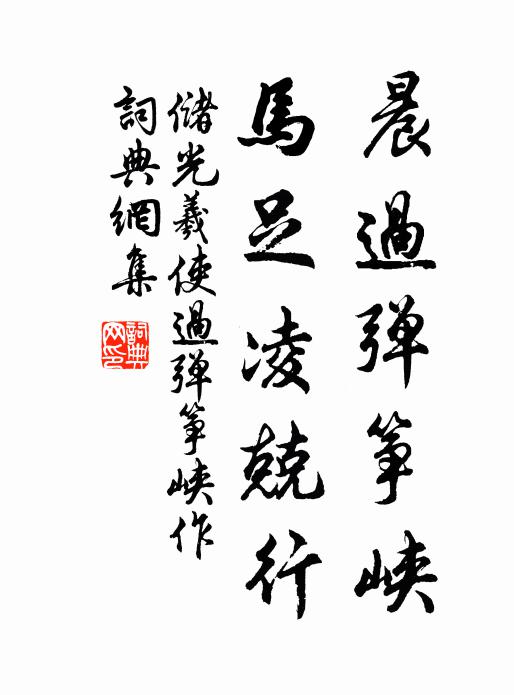 晨過彈箏峽
馬足凌兢行
儲光羲使過彈箏峽作
詞典網集
詞典網印